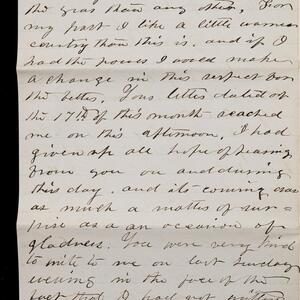 the year than any other. For
my part I like a little warmer
country than this is. and if I
had the power I would make
a change in this respect for
the better. Your letter dated of
the 17th of this month reached
me on this afternoon, I had
given up all hope of hearing
from you on and during
this day. and its coming was
as much a matter of sur-
prise as an occasion of
gladness. You were very kind
to write to me on last Sunday
evening in the face of the
fact that I had not written